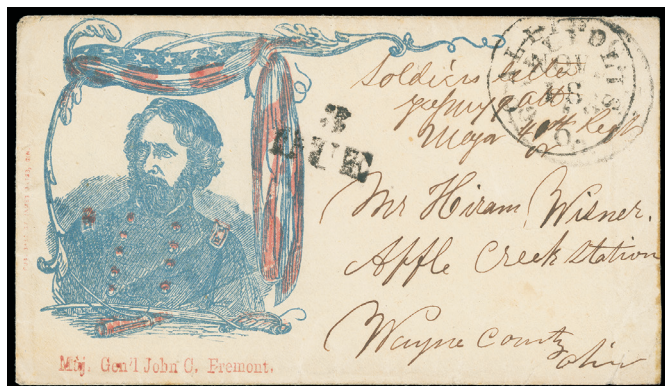 Soldiers Letter
Major 40th Regt
3
DUE
NOV
18
Mr Hiram Wisner.
Apple Creek Station
Wayne County
Ohio
Maj. Gen'l John C. Fremont.